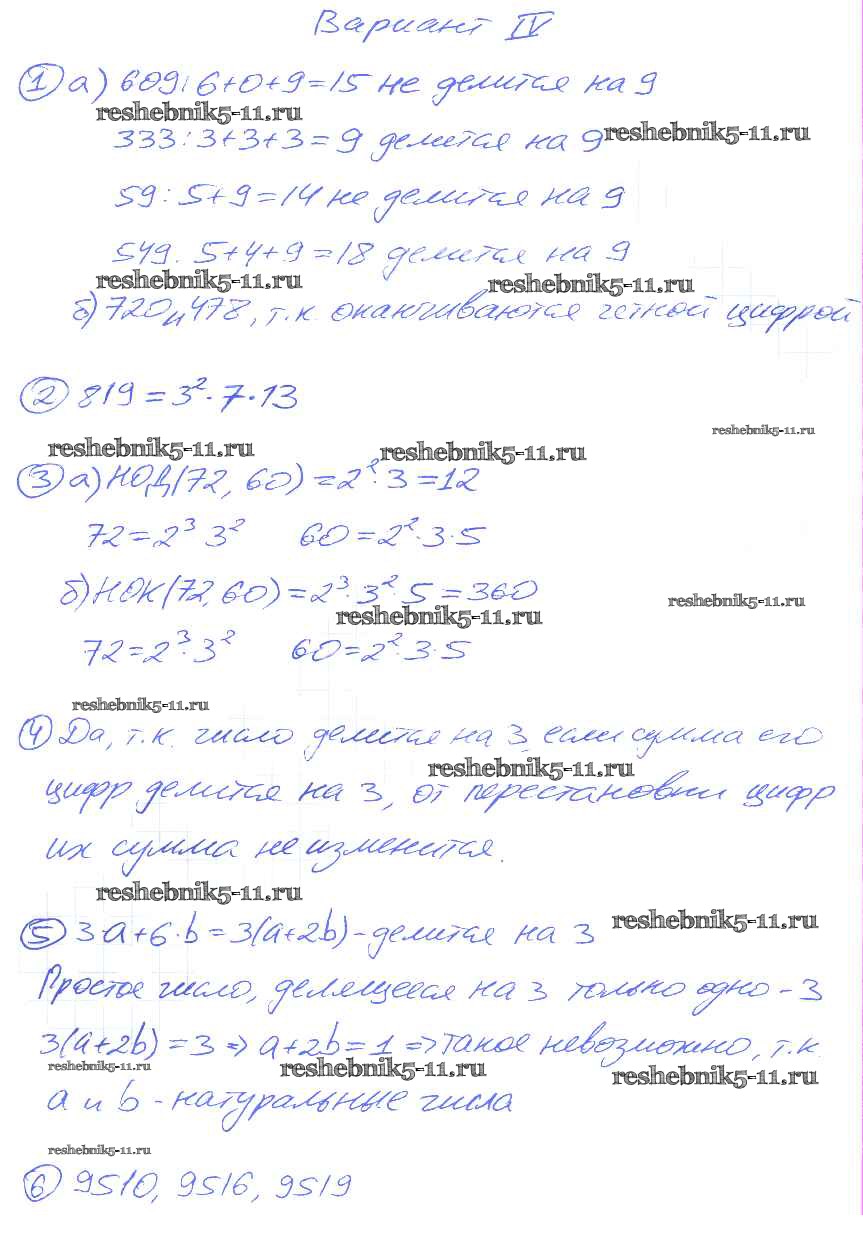 Вариант IV
① а) 609: 6+0+9=15 не делится на 9
reshebnik5-11.ru
333: 3+3+3=9 делится на 9
reshebnik5-11.ru
59: 5+9=14 не делится на 9
549. 5+4+9=18 делится на 9
reshebnik5-11.ru reshebnik5-11.ru
б) 720 и 478, т.к. оканчиваются четной цифрой
② 819=3²·7·13
reshebnik5-11.ru
reshebnik5-11.ru reshebnik5-11.ru
③ а) НОД(72, 60)=2²·3=12
72=2³ 3² 60=2²·3·5
б) НОК(72,60)=2³·3²·5=360
reshebnik5-11.ru reshebnik5-11.ru
72=2³·3² 60=2²·3·5
reshebnik5-11.ru
④ Да, т.к. число делится на 3, если сумма его
reshebnik5-11.ru
цифр делится на 3, от перестановки цифр
их сумма не изменится.
reshebnik5-11.ru
⑤ 3·a+6·b=3(a+2b)-делится на 3
reshebnik5-11.ru
Простое число, делящееся на 3 только одно - 3
3(a+2b)=3 => a+2b=1 => такое невозможно, т.к.
reshebnik5-11.ru reshebnik5-11.ru reshebnik5-11.ru
a и b - натуральные числа
reshebnik5-11.ru
⑥ 9510, 9516, 9519